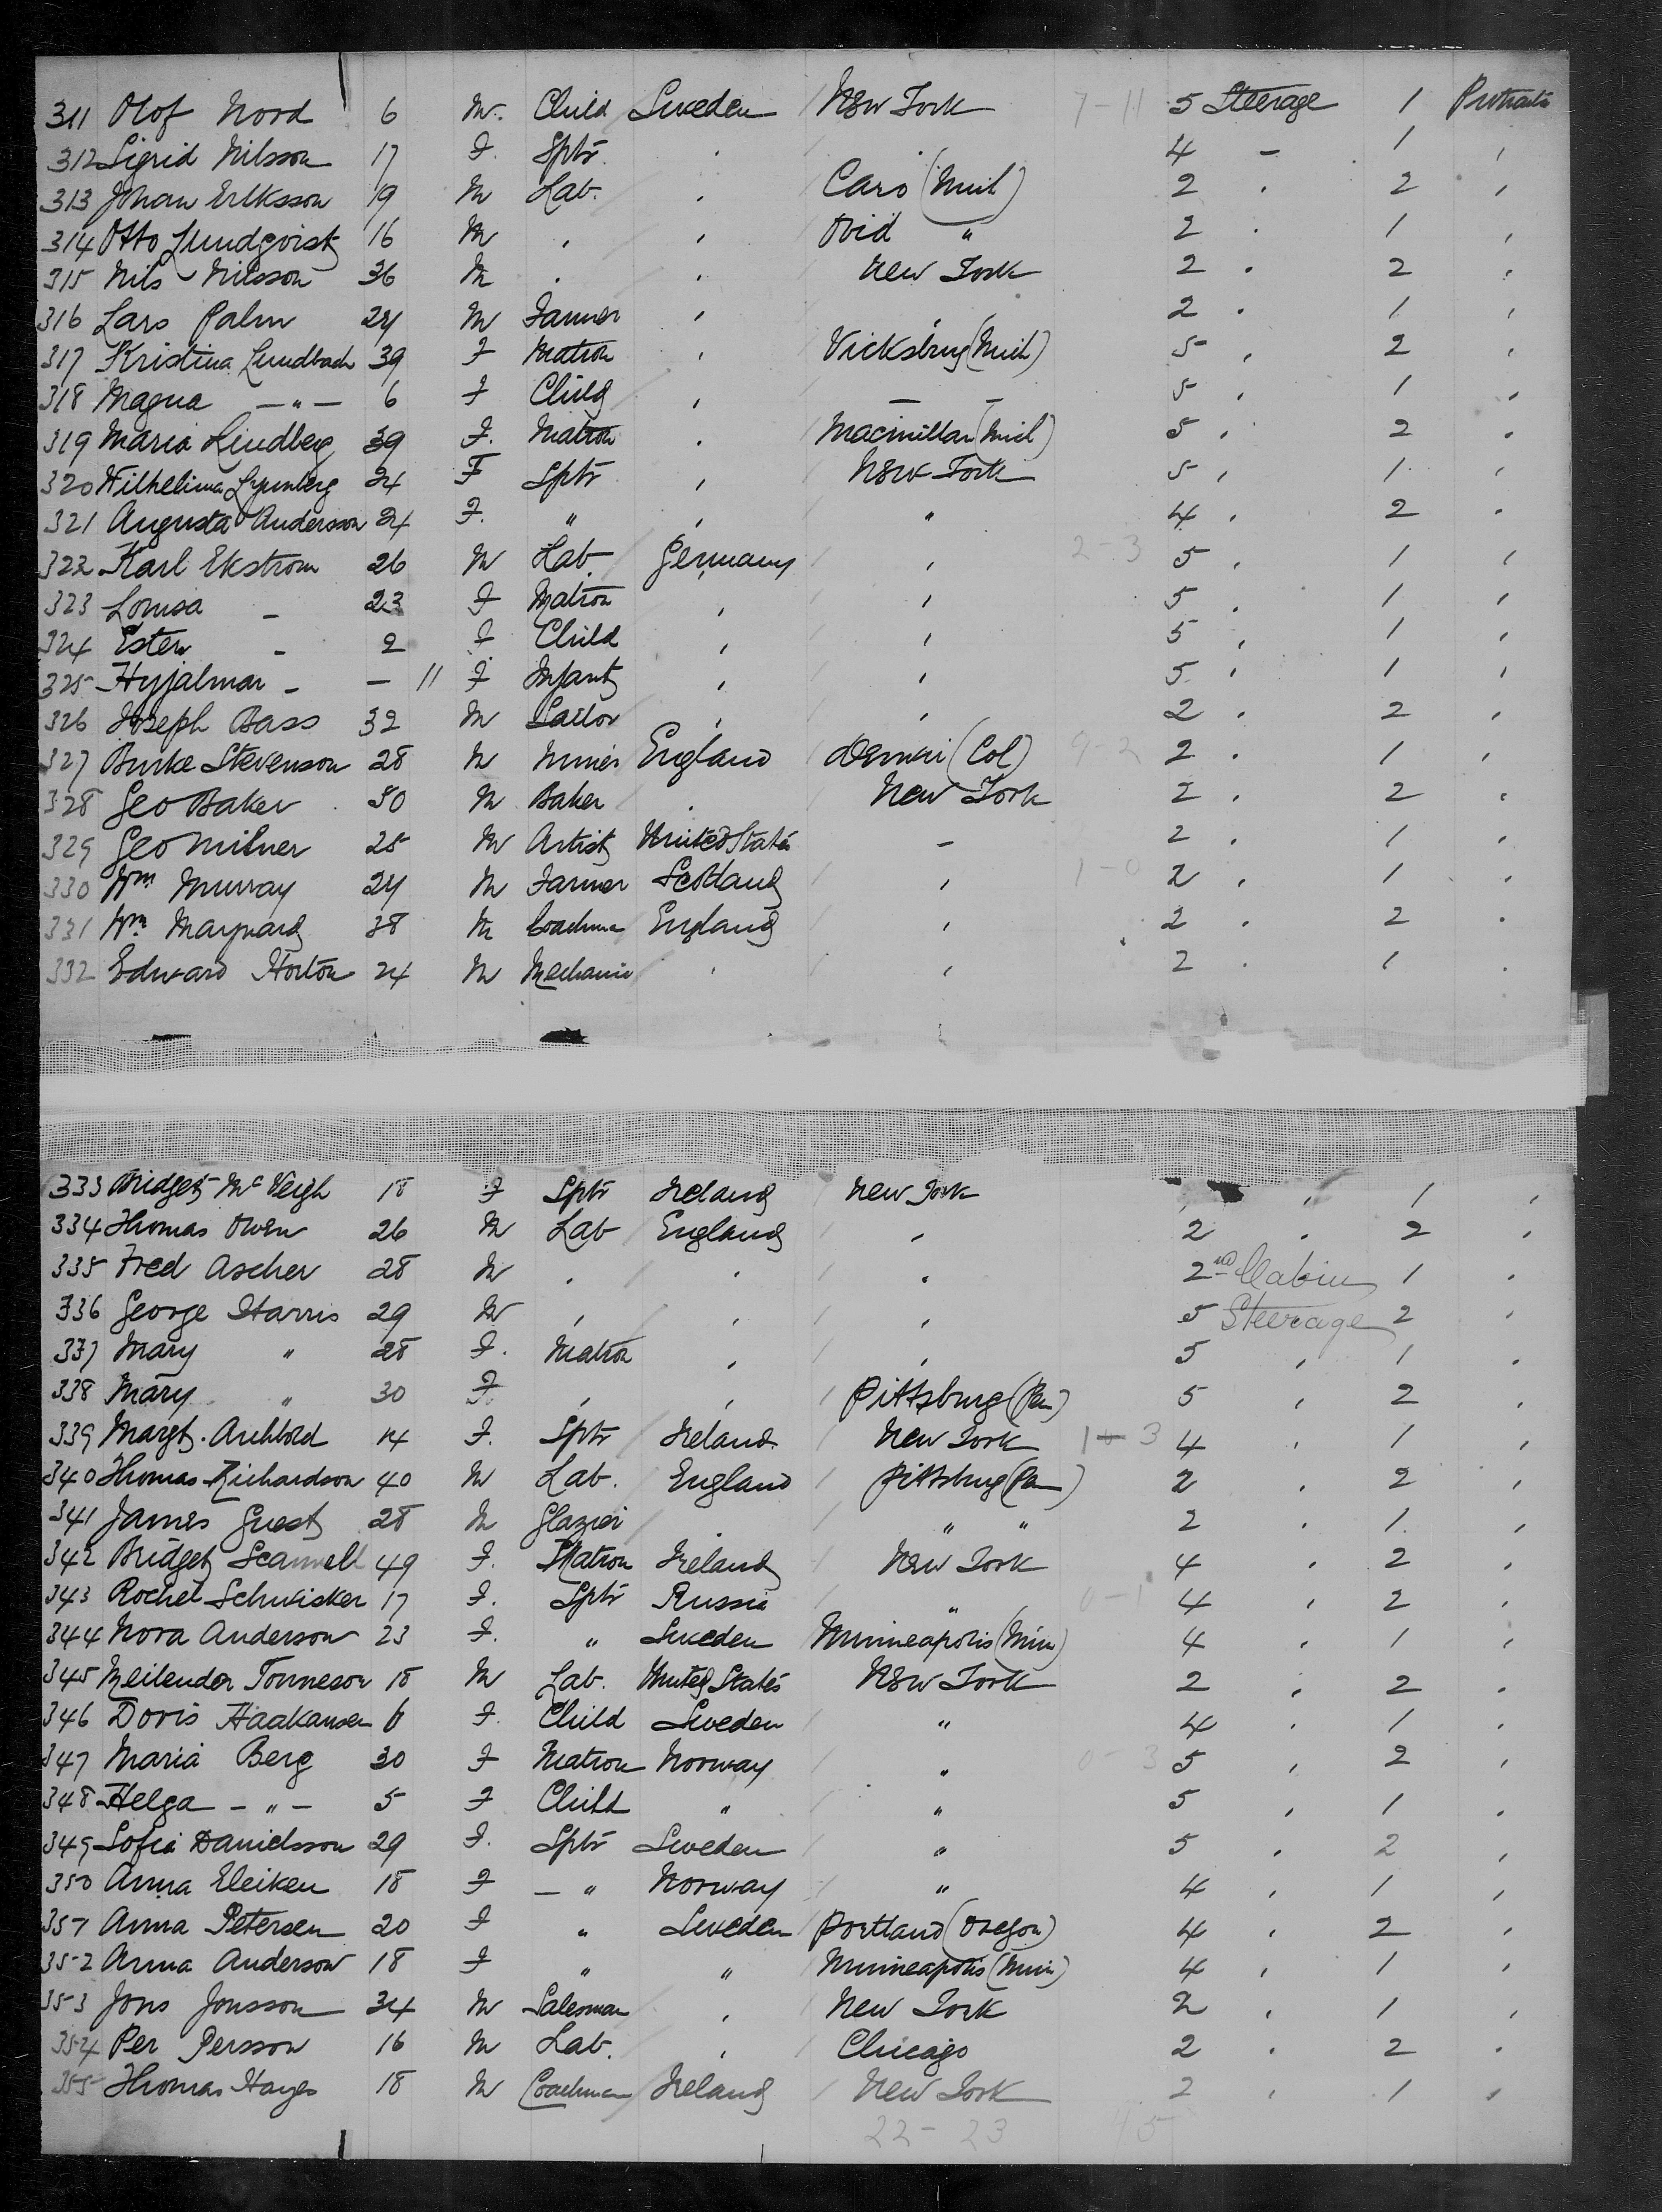 311 Olof Nord 6 M. Child Sweden New York 7-11 5 Steerage 1 Protracted
312 Sigrid Nilsson 17 F. Sptr. " 4 - 1 "
313 Johan Eriksson 19 M Lab. " Caro (Mich) 2 " 2 "
314 Otto Lundqvist 16 M " " Ovid " 2 " 1 "
315 Nils Nilsson 36 M " " New York 2 " 2 "
316 Lars Palm 24 M Farmer " " 2 " 1 "
317 Kristina Lundbach 39 F Matron " Vicksburg (Mich) 5 " 2 "
318 Magna -"- 6 F Child " - - 5 " 1 "
319 Maria Lindberg 39 F. Matron " Macmillan (Mich) 5 " 2 "
320 Wilhelmina 24 F Sptr " New York 5 " 1 "
321 Augusta Andersson 24 F. " " " 4 " 2 "
322 Karl Ekstrom 26 M Lab. Germany " 2-3 5 " 1 "
323 Lousa - 23 F Matron " " 5 " 1 "
324 Ester - 2 F Child " " 5 " 1 "
325 Hyjalmar - - 11 F Infant " " 5 " 1 "
326 Joseph Bass 32 M Sailor " " 2 " 2 "
327 Burke Stevenson 28 M Miner England (Col) 9-2 2 " 1 "
328 Geo Baker 50 M Baker " New York 2 " 2 "
329 Geo Milner 25 M Artist United States - 2 " 1 "
330 Wm Murray 24 M Farmer Scotland " 1-0 2 " 1 "
331 Wm Maynard 38 M Coachman England " 2 " 2 "
332 Edward Horton 24 M Mechanic " " 2 " 1 "
333 Bridget McVeigh 18 F Sptr Ireland New York " 1 "
334 Thomas Owen 26 M Lab England " 2 " 2 "
335 Fred Ascher 28 M " " " 2nd Cabin 1 "
336 George Harris 29 M " " " 5 Steerage 2 "
337 Mary " 28 F. Matron " " 5 " 1 "
338 Mary " 30 F " " Pittsburg (Pen) 5 " 2 "
339 Margt. Archbold 14 F. Sptr Ireland New York 1 3 4 " 1 "
340 Thomas Richardson 40 M Lab. England Pittsburg (Pen) 2 " 2 "
341 James Guest 28 M Glazier " " " 2 " 1 "
342 Bridget Scannell 49 F. Matron Ireland New York 4 " 2 "
343 Rochel Schwisker 17 F. Sptr Russia " 0-1 4 " 2 "
344 Nora Anderson 23 F. " Sweden Minneapolis (Minn) 4 " 1 "
345 Tonneson 18 M Lab. United States New York 2 " 2 "
346 Doris Haakansen 6 F. Child Sweden " 4 " 1 "
347 Maria Berg 30 F Matron Norway " 0-3 5 " 2 "
348 Helga -"- 5 F Child " " 5 " 1 "
349 Sofia Danielsson 29 F. Sptr Sweden " 5 " 2 "
350 Anna Eleiken 18 F -" Norway " 4 " 1 "
351 Anna Petersen 20 F " Sweden Portland (Oregon) 4 " 2 "
352 Anna Anderson 18 F " " Minneapolis (Minn) 4 " 1 "
353 Jons Jonsson 34 M Salesman " New York 2 " 1 "
354 Per Persson 16 M Lab. " Chicago 2 " 2 "
355 Thomas Hayes 18 M Coachman Ireland New York 2 " 1 "
22-23 45